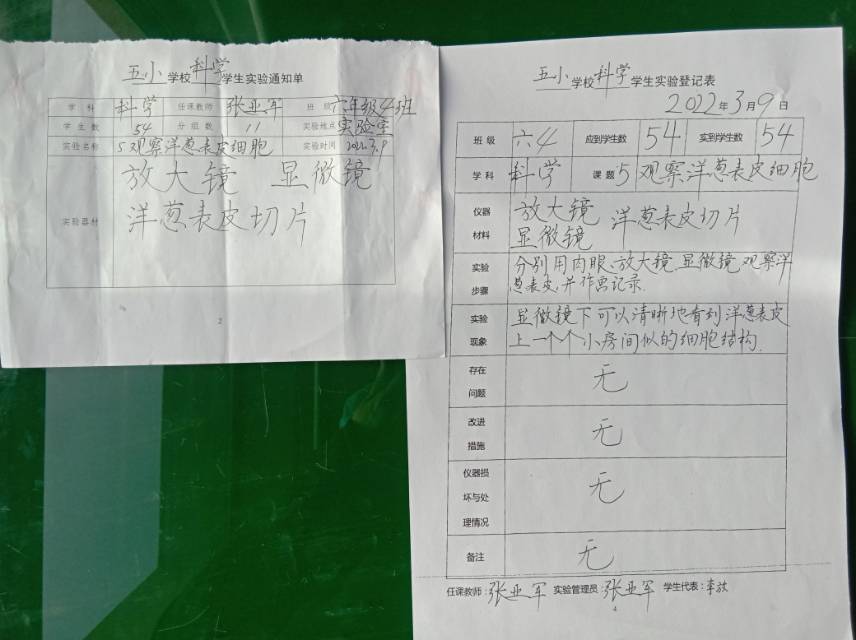 五小学校科学学生实验通知单
学科 科学 任课教师 张亚军 班级 六年级4班
学生数 54 分组数 11 实验地点 实验室
实验名称 5观察洋葱表皮细胞 实验时间 2022.3.9
实验器材 放大镜 显微镜
洋葱表皮切片
2
五小学校科学学生实验登记表
2022年3月9日
班级 六4 应到学生数 54 实到学生数 54
学科 科学 课题 5 观察洋葱表皮细胞
仪器材料 放大镜 洋葱表皮切片
显微镜
实验步骤 分别用肉眼、放大镜、显微镜观察洋
葱表皮,并作画记录.
实验现象 显微镜下可以清晰地看到洋葱表皮
上一个个小房间似的细胞结构.
存在问题 无
改进措施 无
仪器损坏与处理情况 无
备注 无
任课教师:张亚军 实验管理员:张亚军 学生代表:李
4